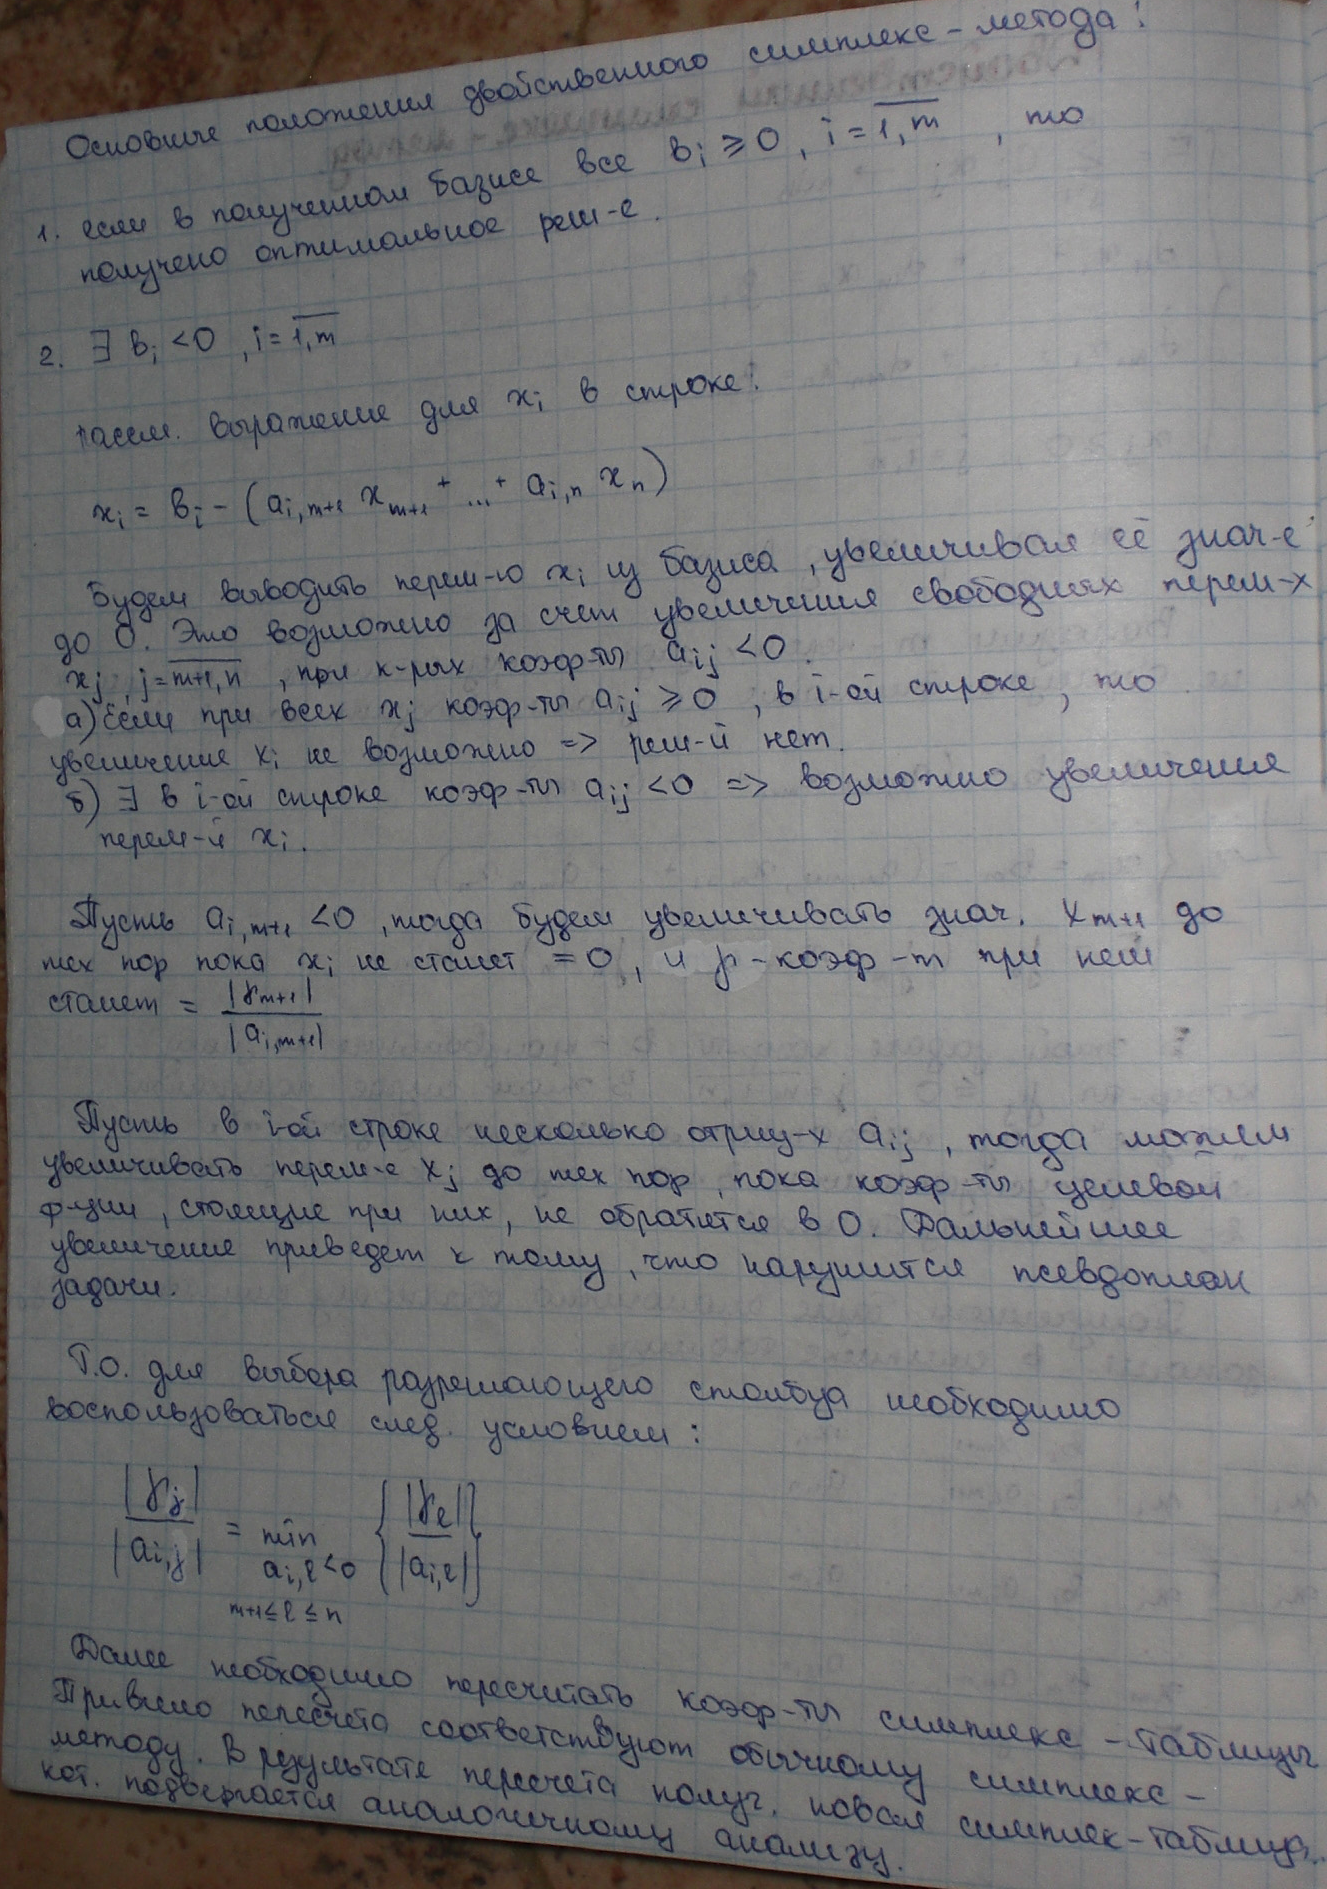 Основные положения двойственного симплекс-метода:
1. если в полученном базисе все bᵢ ≥ 0, i = 1,m, то
получено оптимальное реш-е.
2. ∃ bᵢ < 0, i = 1,m
рассм. выражение для xᵢ в строке:
xᵢ = bᵢ - (aᵢ,ₘ₊₁ xₘ₊₁ + ... + aᵢ,ₙ xₙ)
Будем выводить перем-ю xᵢ из базиса, увеличивая её знач-е
до 0. Это возможно за счет увеличения свободных перем-х
xⱼ, j = m+1,n, при к-рых коэф-ты aᵢⱼ < 0.
а) Если при всех xⱼ коэф-ты aᵢⱼ ≥ 0, в i-ой строке, то
увеличение xᵢ не возможно => реш-й нет.
б) ∃ в i-ой строке коэф-ты aᵢⱼ < 0 => возможно увеличение
перем-й xᵢ.
Пусть aᵢ,ₘ₊₁ < 0, тогда будем увеличивать знач. xₘ₊₁ до
тех пор пока xᵢ не станет = 0, и γ-коэф-т при нем
станет = |γₘ₊₁| / |aᵢ,ₘ₊₁|
Пусть в i-ой строке несколько отриц-х aᵢⱼ, тогда можем
увеличивать перем-е xⱼ до тех пор, пока коэф-ты целевой
ф-ции, стоящие при них, не обратятся в 0. Дальнейшее
увеличение приведет к тому, что нарушится псевдоплан
задачи.
Т.О. для выбора разрешающего столбца необходимо
воспользоваться след. условием:
|γⱼ| / |aᵢ,ⱼ| = min { |γₗ| / |aᵢ,ₗ| }
aᵢ,ₗ < 0
m+1 ≤ l ≤ n
Далее необходимо пересчитать коэф-ты симплекс-таблицы
Правило пересчета соответствуют обычному симплекс-
методу. В результате пересчета получ. новая симплек-таблица,
кот. подвергается аналогичному анализу.